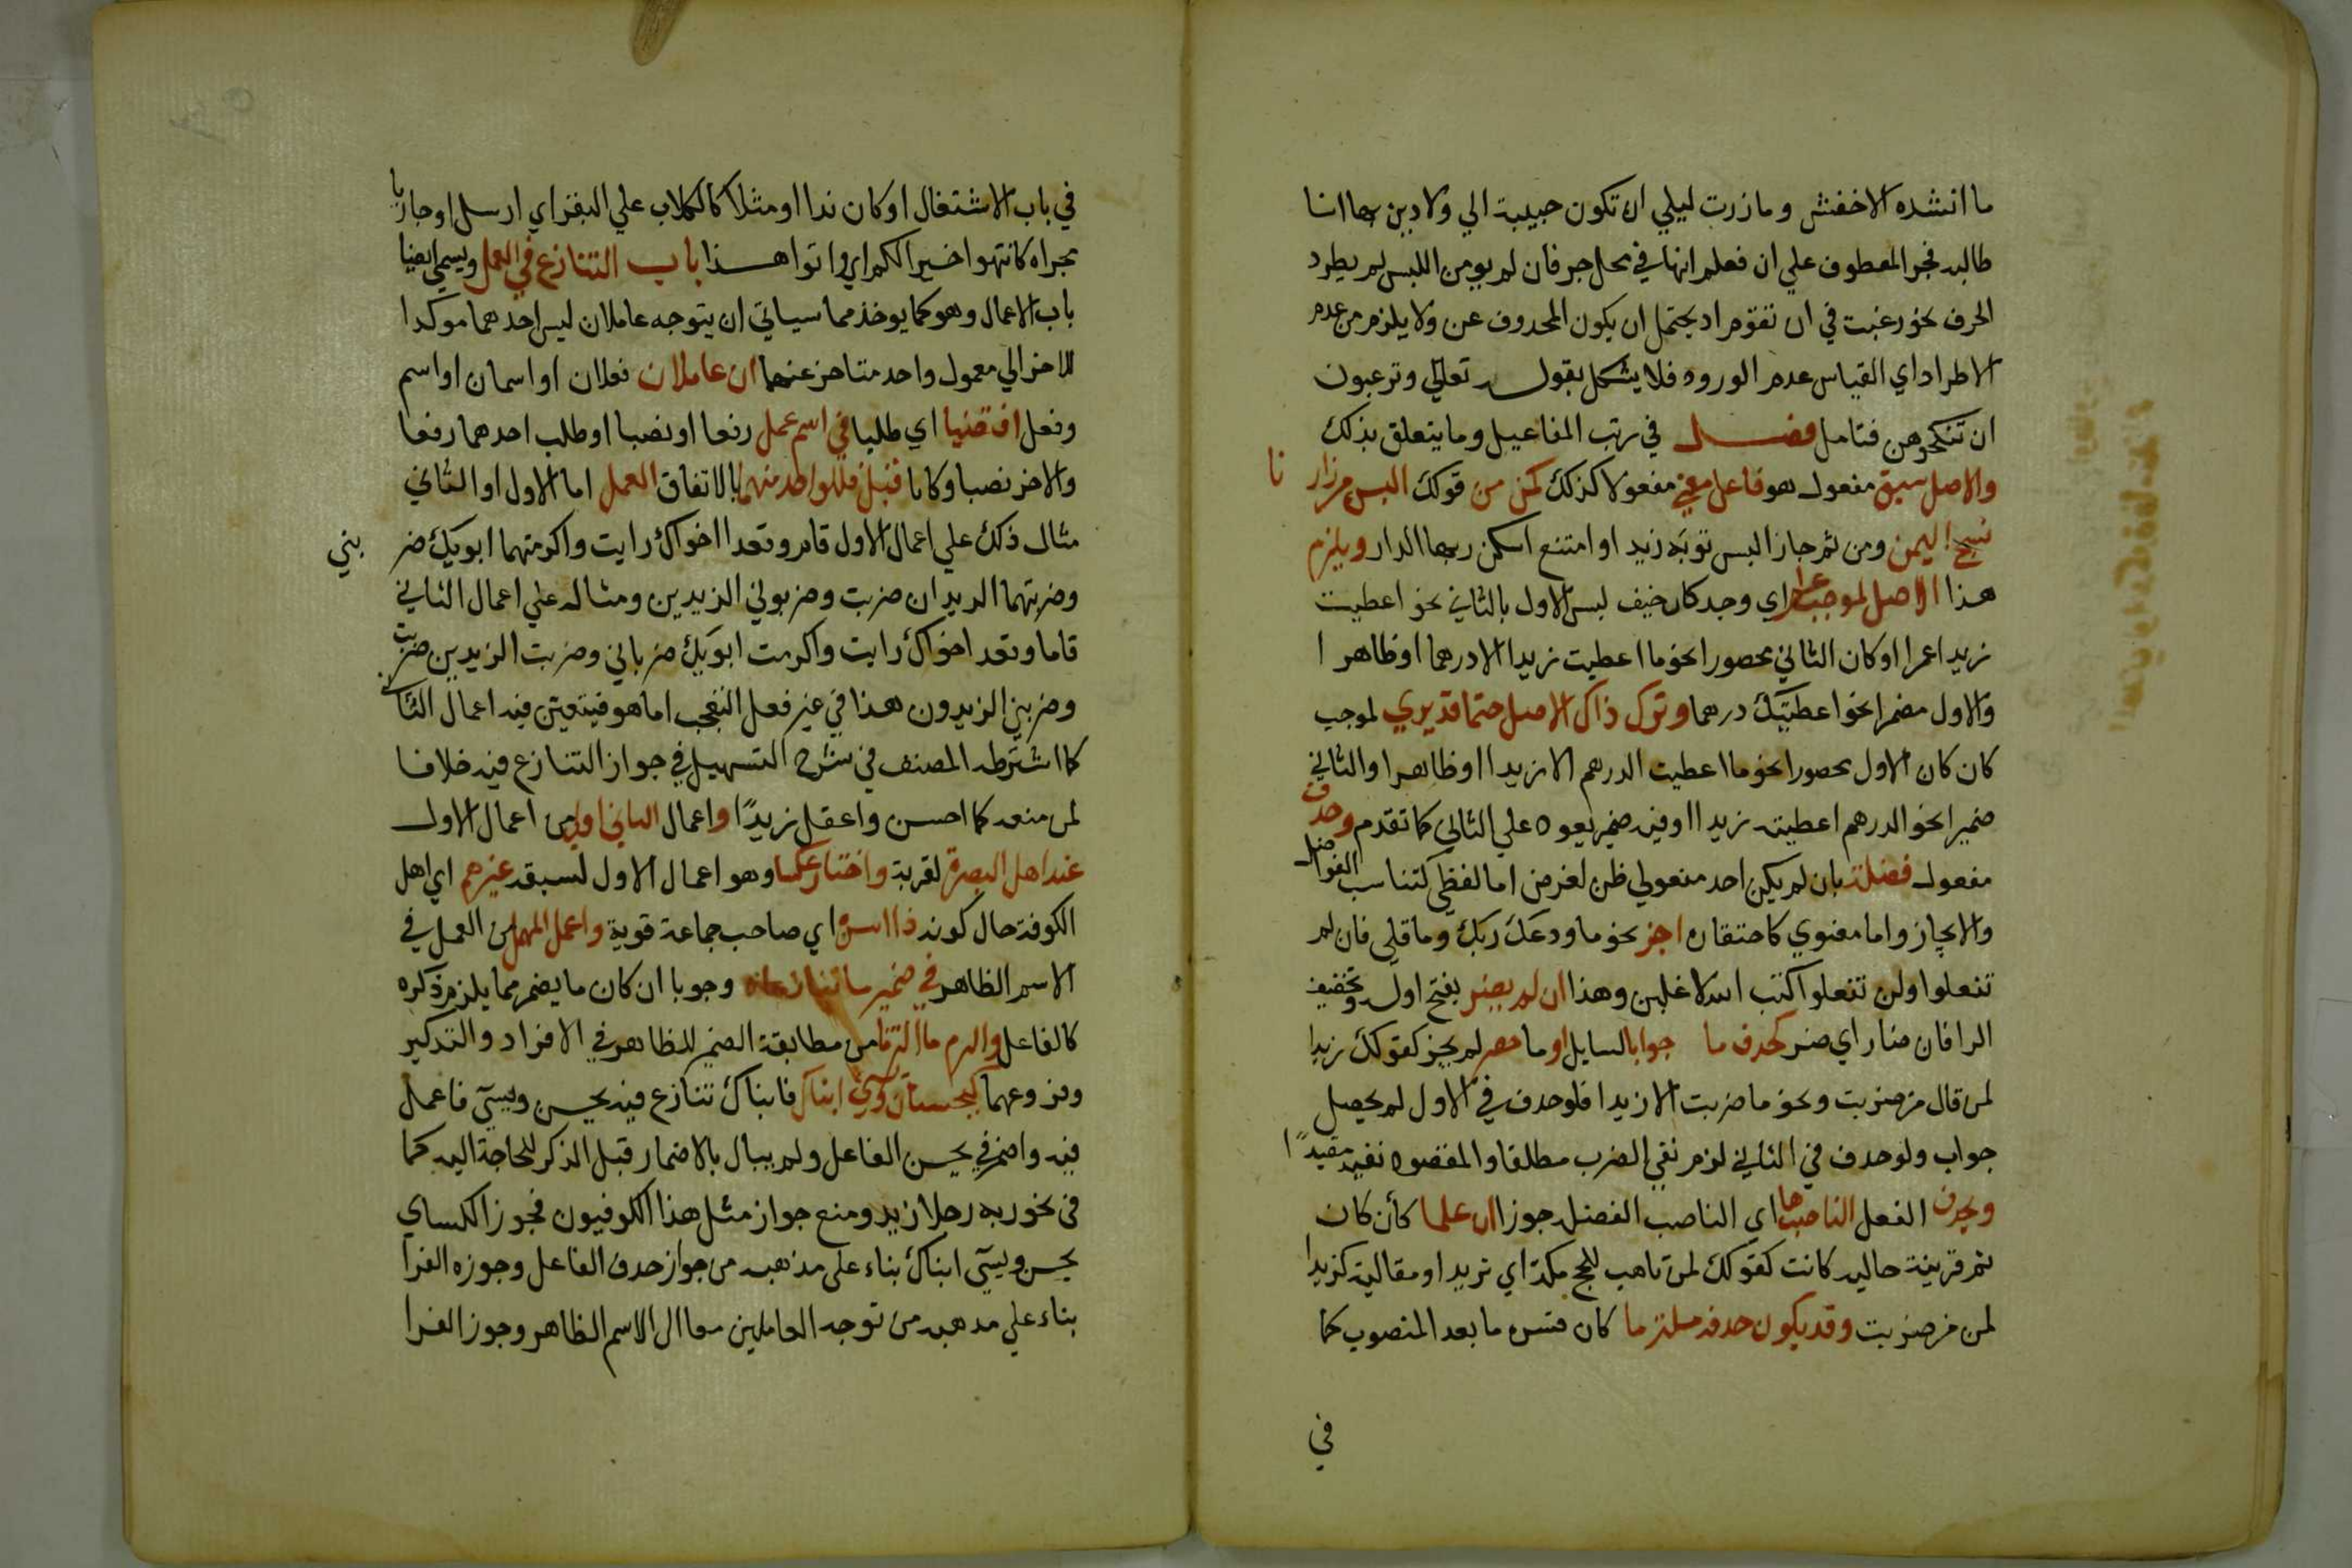 ما انشده الاخفش وما زرت ليلي ان تكون حبيبة الي ولا دين بها انا
طالبه فجر المعطوف علي ان فعلم انها في محل جر فان لم يومن اللبس لم يطرد
الحرف نحو رغبت في ان تقوم اد يحتمل ان يكون المحدوف عن ولا يلزم من عدم
الاطراد اي القياس عدم الورود فلا يشكل بقوله تعالي وترغبون
ان تنكحوهن فتامل فصل في رتب المفاعيل وما يتعلق بذلك
والاصل سبق مفعول هو فاعل معني مفعولا كذلك كمن من قولك البس من زار
نا
نسج اليمن ومن ثم جاز البس ثوبه زيد او امتنع اسكن ربها الدار ويلزم
هذا الاصل لموجب عرا اي وجد كان خيف لبس الاول بالثاني نحو اعطيت
زيدا عمرا او كان الثاني محصورا نحو ما اعطيت زيدا الا درهما او ظاهرا
والاول مضمرا نحو اعطيتك درهما وترك ذاك الاصل حتما قد يري لموجب
كان كان الاول محصورا نحو ما اعطيت الدرهم الا زيدا او ظاهرا والثاني
ضميرا نحو الدرهم اعطيته زيدا او فيه ضمير يعود علي الثاني كما تقدم وحدف
مفعول فضلة بان لم يكن احد مفعولي ظن لغرض اما لفظي كتناسب الفواصل
والايجاز واما معنوي كاحتقاره اجز نحو ما ودعك ربك وما قلي فان لم
تفعلوا ولن تفعلوا كتب الله لاغلبن وهذا ان لم يضر بفتح اوله وتخفيف
الرا فان ضار اي ضر كحدف ما جوابا لسايل او ما حصر لم يجز كقولك زيدا
لمن قال من ضربت ونحو ما ضربت الا زيدا فلو حدف في الاول لم يحصل
جواب ولو حدف في الثاني لزم نفي الضرب مطلقا والمقصود نفيه مقيدا
ويحدف الفعل الناصبها اي الناصب الفضله جوزا ان علما كأن كان
ثم قرينة حاليه كانت كقولك لمن تاهب للحج مكة اي تريد او مقالية كزيدا
لمن من ضربت وقد يكون حدفه ملتزما كان فسره ما بعد المنصوب كما
في
في باب الاشتغال او كان ندا او مثلا كالكلاب علي البقر اي ارسل او جاريا
مجراه كانتهوا خيرا لكم اي واتوا هذا باب التنازع في العمل ويسمي ايضا
باب الاعمال وهو كما يوخذ مما سياتي ان يتوجه عاملان ليس احدهما موكدا
للاخر الي معمول واحد متاخر عنهما ان عاملان فعلان او اسمان او اسم
وفعل اقتضيا اي طلبا في اسم عمل رفعا او نصبا او طلب احدهما رفعا
والاخر نصبا وكانا قبل فللواحد منهما بالاتفاق العمل اما الاول او الثاني
مثال ذلك علي اعمال الاول قام وقعدا اخواك رايت واكرمتهما ابويك ضر
بني
وضربتهما الزيدان ضربت وضربوني الزيدين ومثاله علي اعمال الثاني
قاما وقعد اخواك رايت واكرمت ابويك ضرباني وضربت الزيدين ضربت
وضربني الزيدون هذا في غير فعل التعجب اما هو فيتعين فيه اعمال الثاني
كما اشترطه المصنف في شرح التسهيل في جواز التنازع فيه خلافا
لمن منعه كما احسن واعقل زيدًا واعمال الثاني اولي من اعمال الاول
عند اهل البصرة لقربه واختار عكسا وهو اعمال الاول لسبقه غيرهم اي اهل
الكوفة حال كونه ذا اسره اي صاحب جماعة قوية واعمل المهمل من العمل في
الاسم الظاهر في ضمير ما تنازعاه وجوبا ان كان ما يضمر مما يلزم ذكره
كالفاعل والزم ما التزما من مطابقة الضمير للظاهر في الافراد والتدكير
وفروعهما كيحسنان ويسي ابناك فابناك تنازع فيه يحسن ويسي فاعمل
فيه واضمر في يحسن الفاعل ولم يبال بالاضمار قبل الذكر للحاجة اليه كما
في نحو ربه رجلا زيد ومنع جواز مثل هذا الكوفيون فجوز الكساي
يحسن ويسي ابناك بناء علي مذهبه من جواز حدف الفاعل وجوزه الفرا
بناء علي مدهبه من توجه العاملين معا الي الاسم الظاهر وجوز الفرا